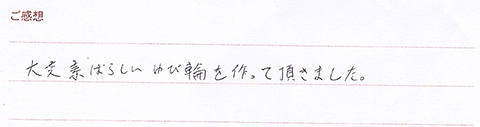 ご感想
大変素ばらしいゆび輪を作って頂きました。